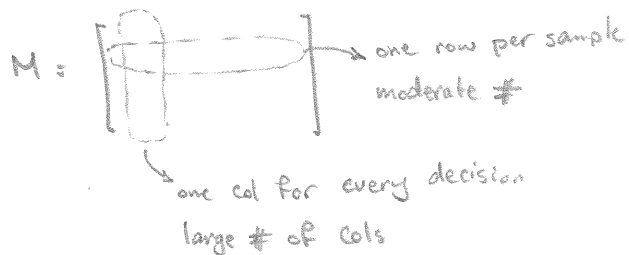 M =
one row per sample
moderate #
one col for every decision
large # of cols